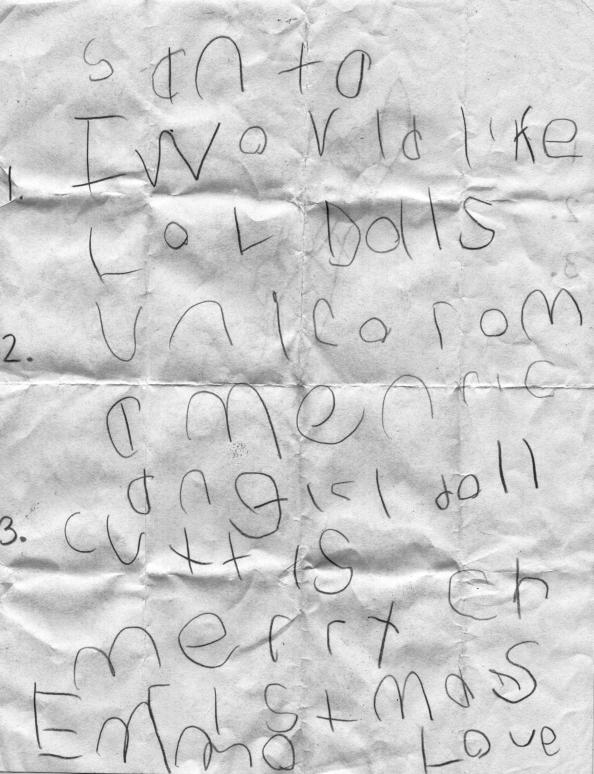 santa
I Would like
1. LoL Dolls
2. Unicorom
amenric
an girl doll
3. cuttis
merry Ch
ristmas
Emma Love